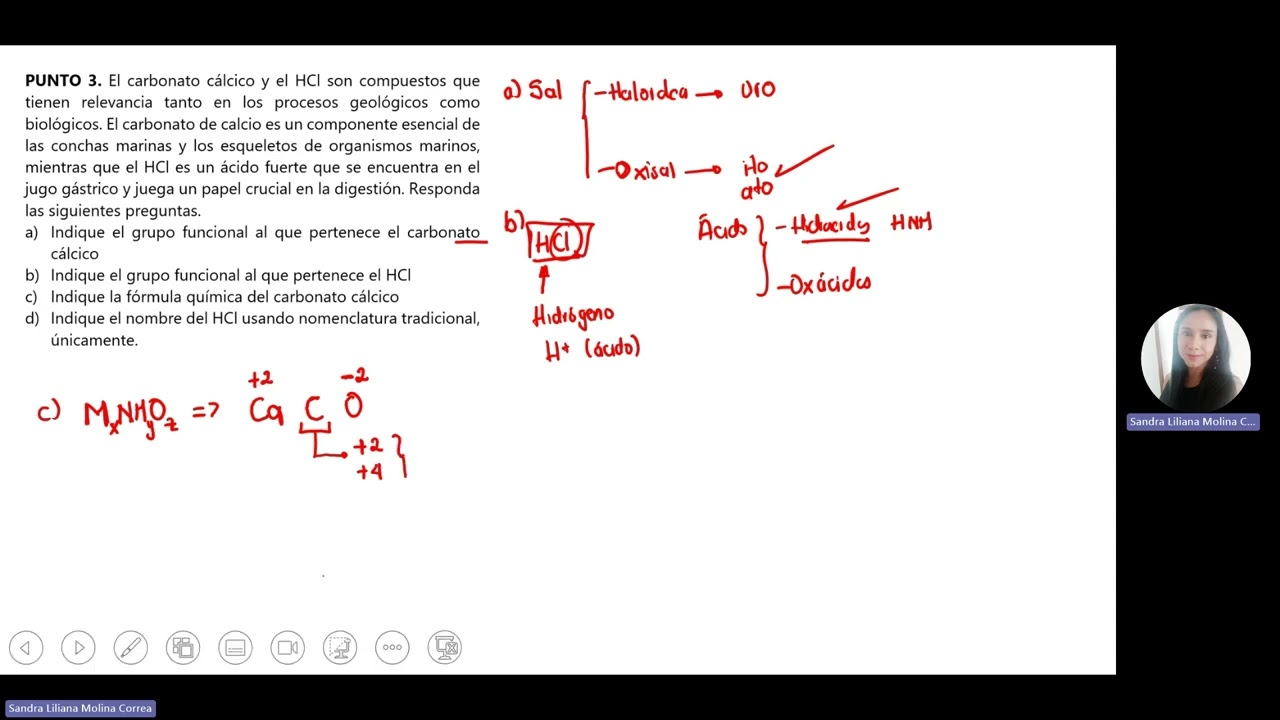 PUNTO 3. El carbonato cálcico y el HCl son compuestos que
tienen relevancia tanto en los procesos geológicos como
biológicos. El carbonato de calcio es un componente esencial de
las conchas marinas y los esqueletos de organismos marinos,
mientras que el HCl es un ácido fuerte que se encuentra en el
jugo gástrico y juega un papel crucial en la digestión. Responda
las siguientes preguntas.
a) Indique el grupo funcional al que pertenece el carbonato
cálcico
b) Indique el grupo funcional al que pertenece el HCl
c) Indique la fórmula química del carbonato cálcico
d) Indique el nombre del HCl usando nomenclatura tradicional,
únicamente.
a) Sal
- Haloidea → uro
- Oxisal → ito
ato
b) HCl
Hidrógeno
H+ (ácido)
Ácido
- Hidrácidos HNM
- Oxácidos
c) MxNMyOz => Ca C O
+2 -2
+2
+4
Sandra Liliana Molina C...
Sandra Liliana Molina Correa